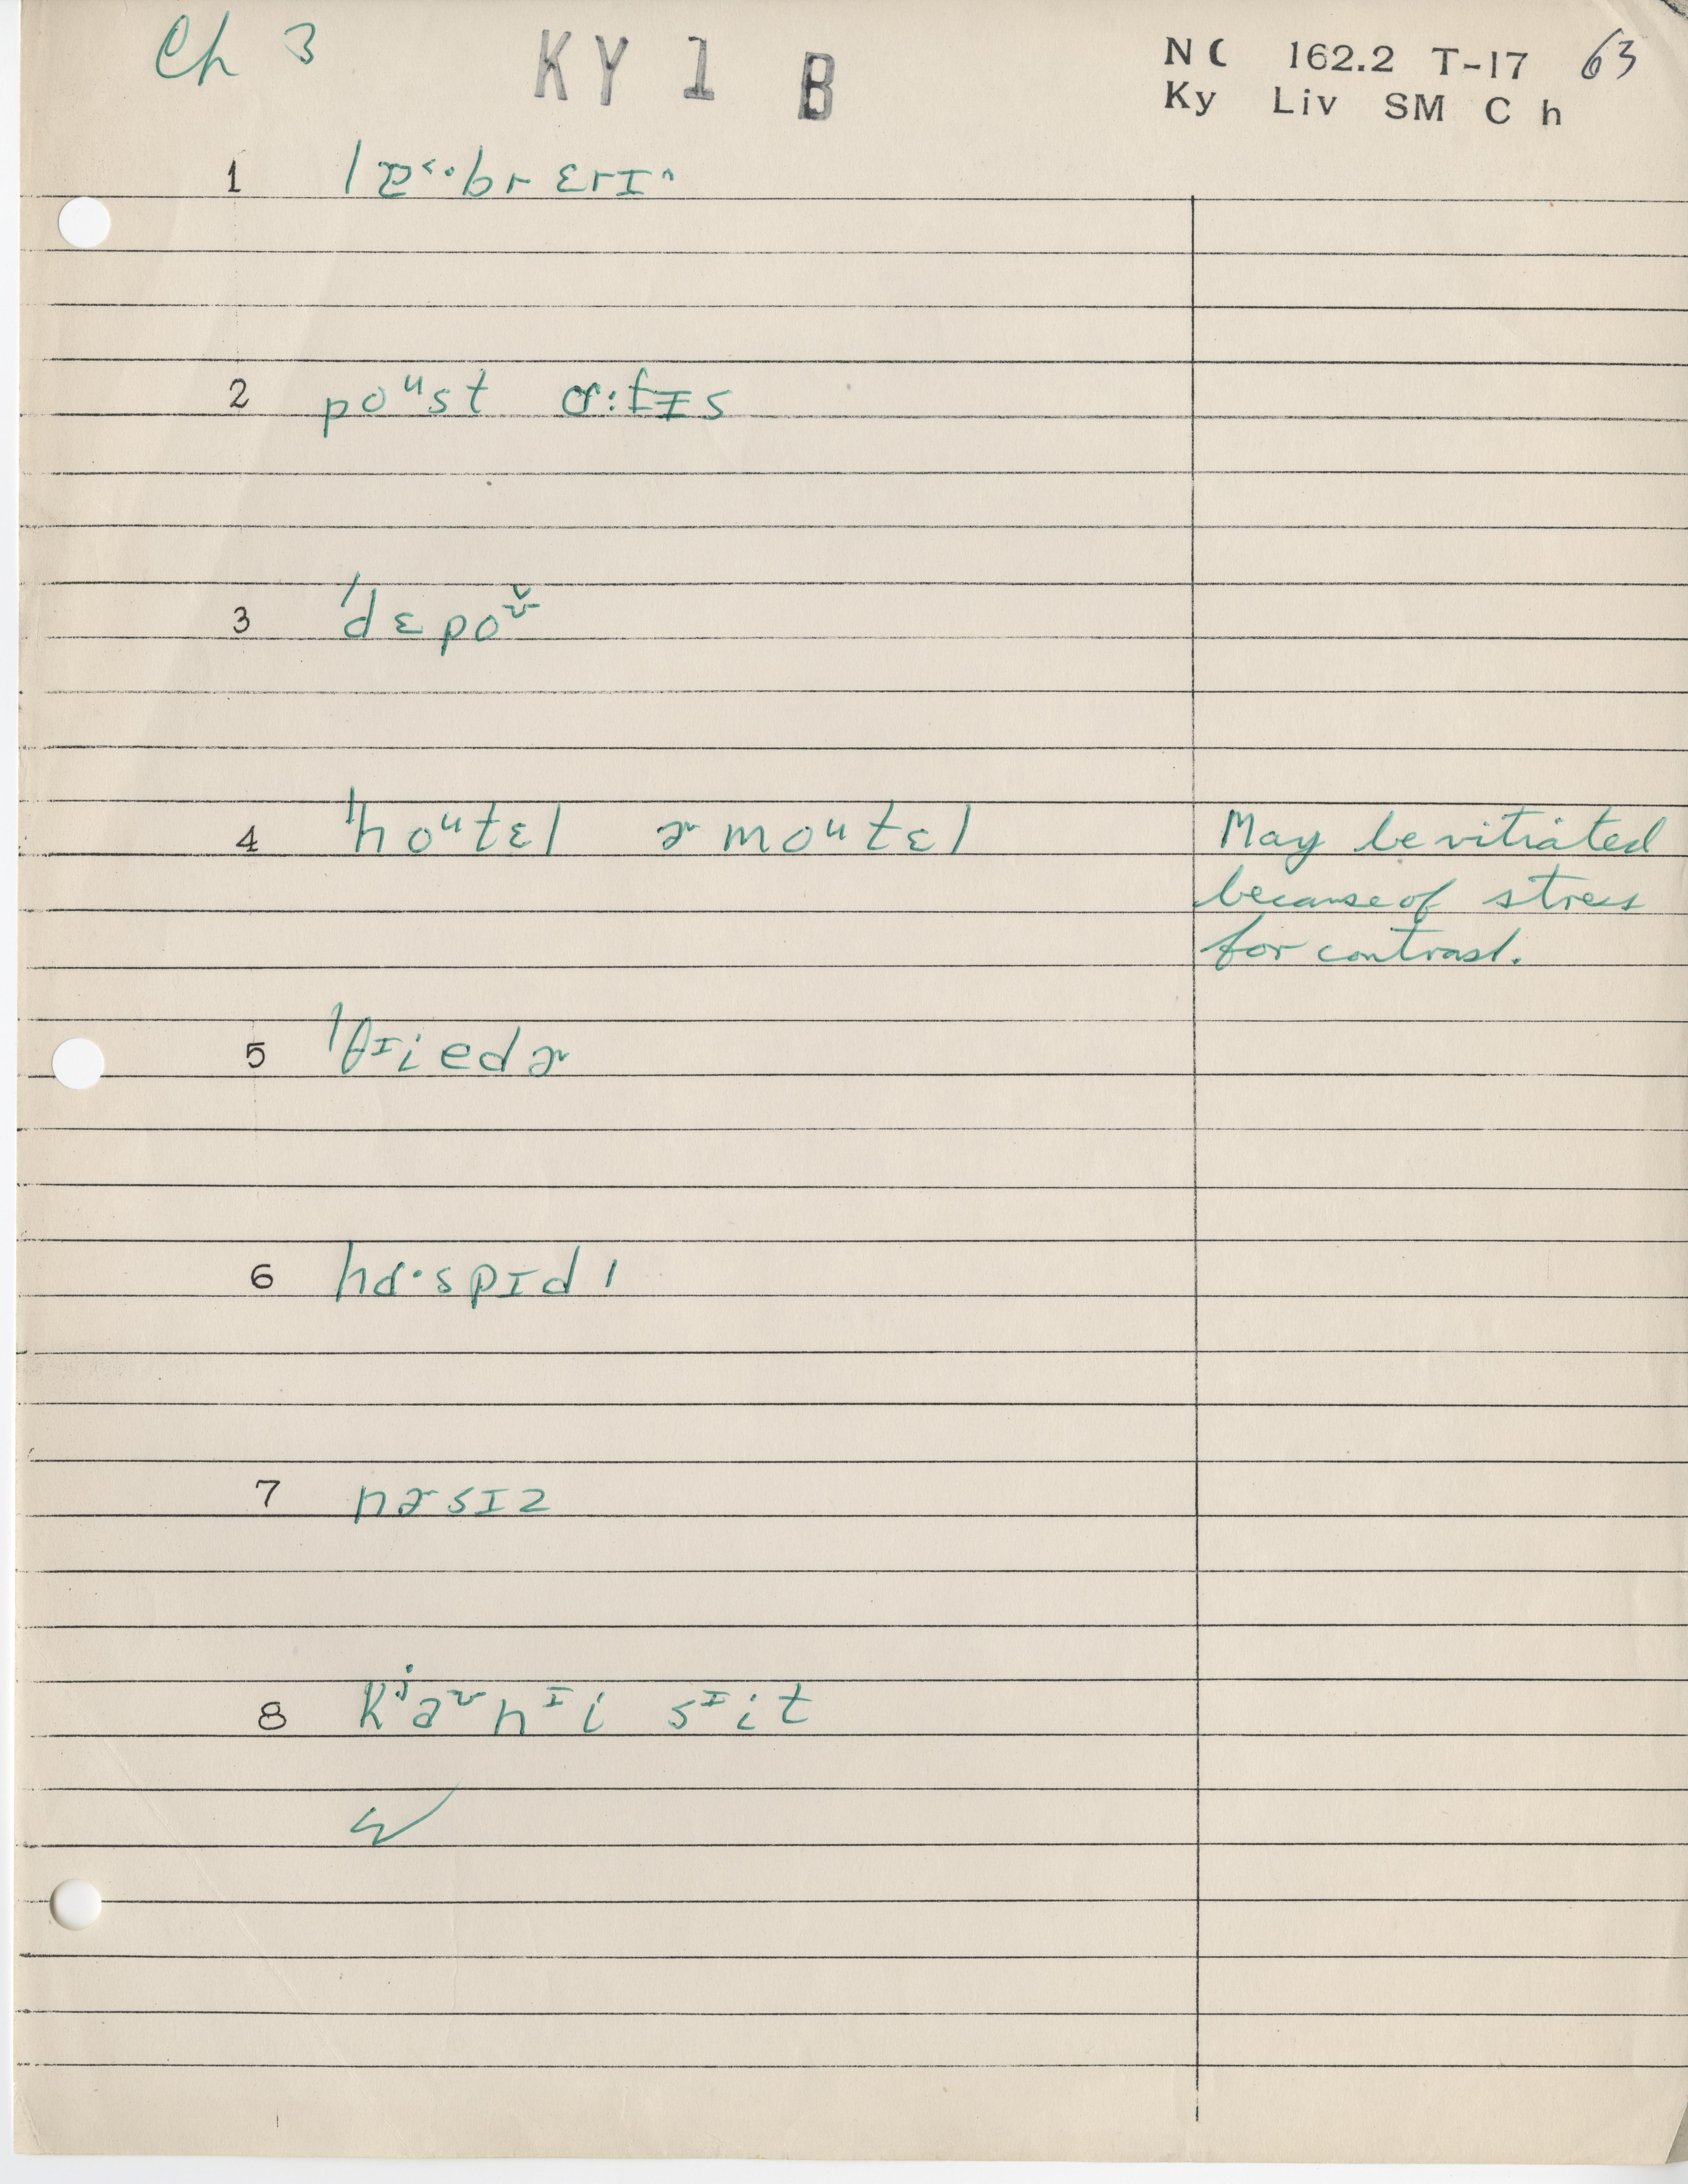 Ch 3 KY 1 B NC 162.2 T-17 63
Ky Liv SM Ch
1 lɐ˂·brɛrɪ^
2 poᵘst ɑ:fɪs
3 ˈdɛpoʊ̌
4 ˈhoᵘtɛl ɚ moᵘtɛl May be vitiated
because of stress
for contrast.
5 ˈθᶦiedɚ
6 hɑ·spɪdl
7 nɚsɪz
8 kʲaᶷnᶦi sᶦit